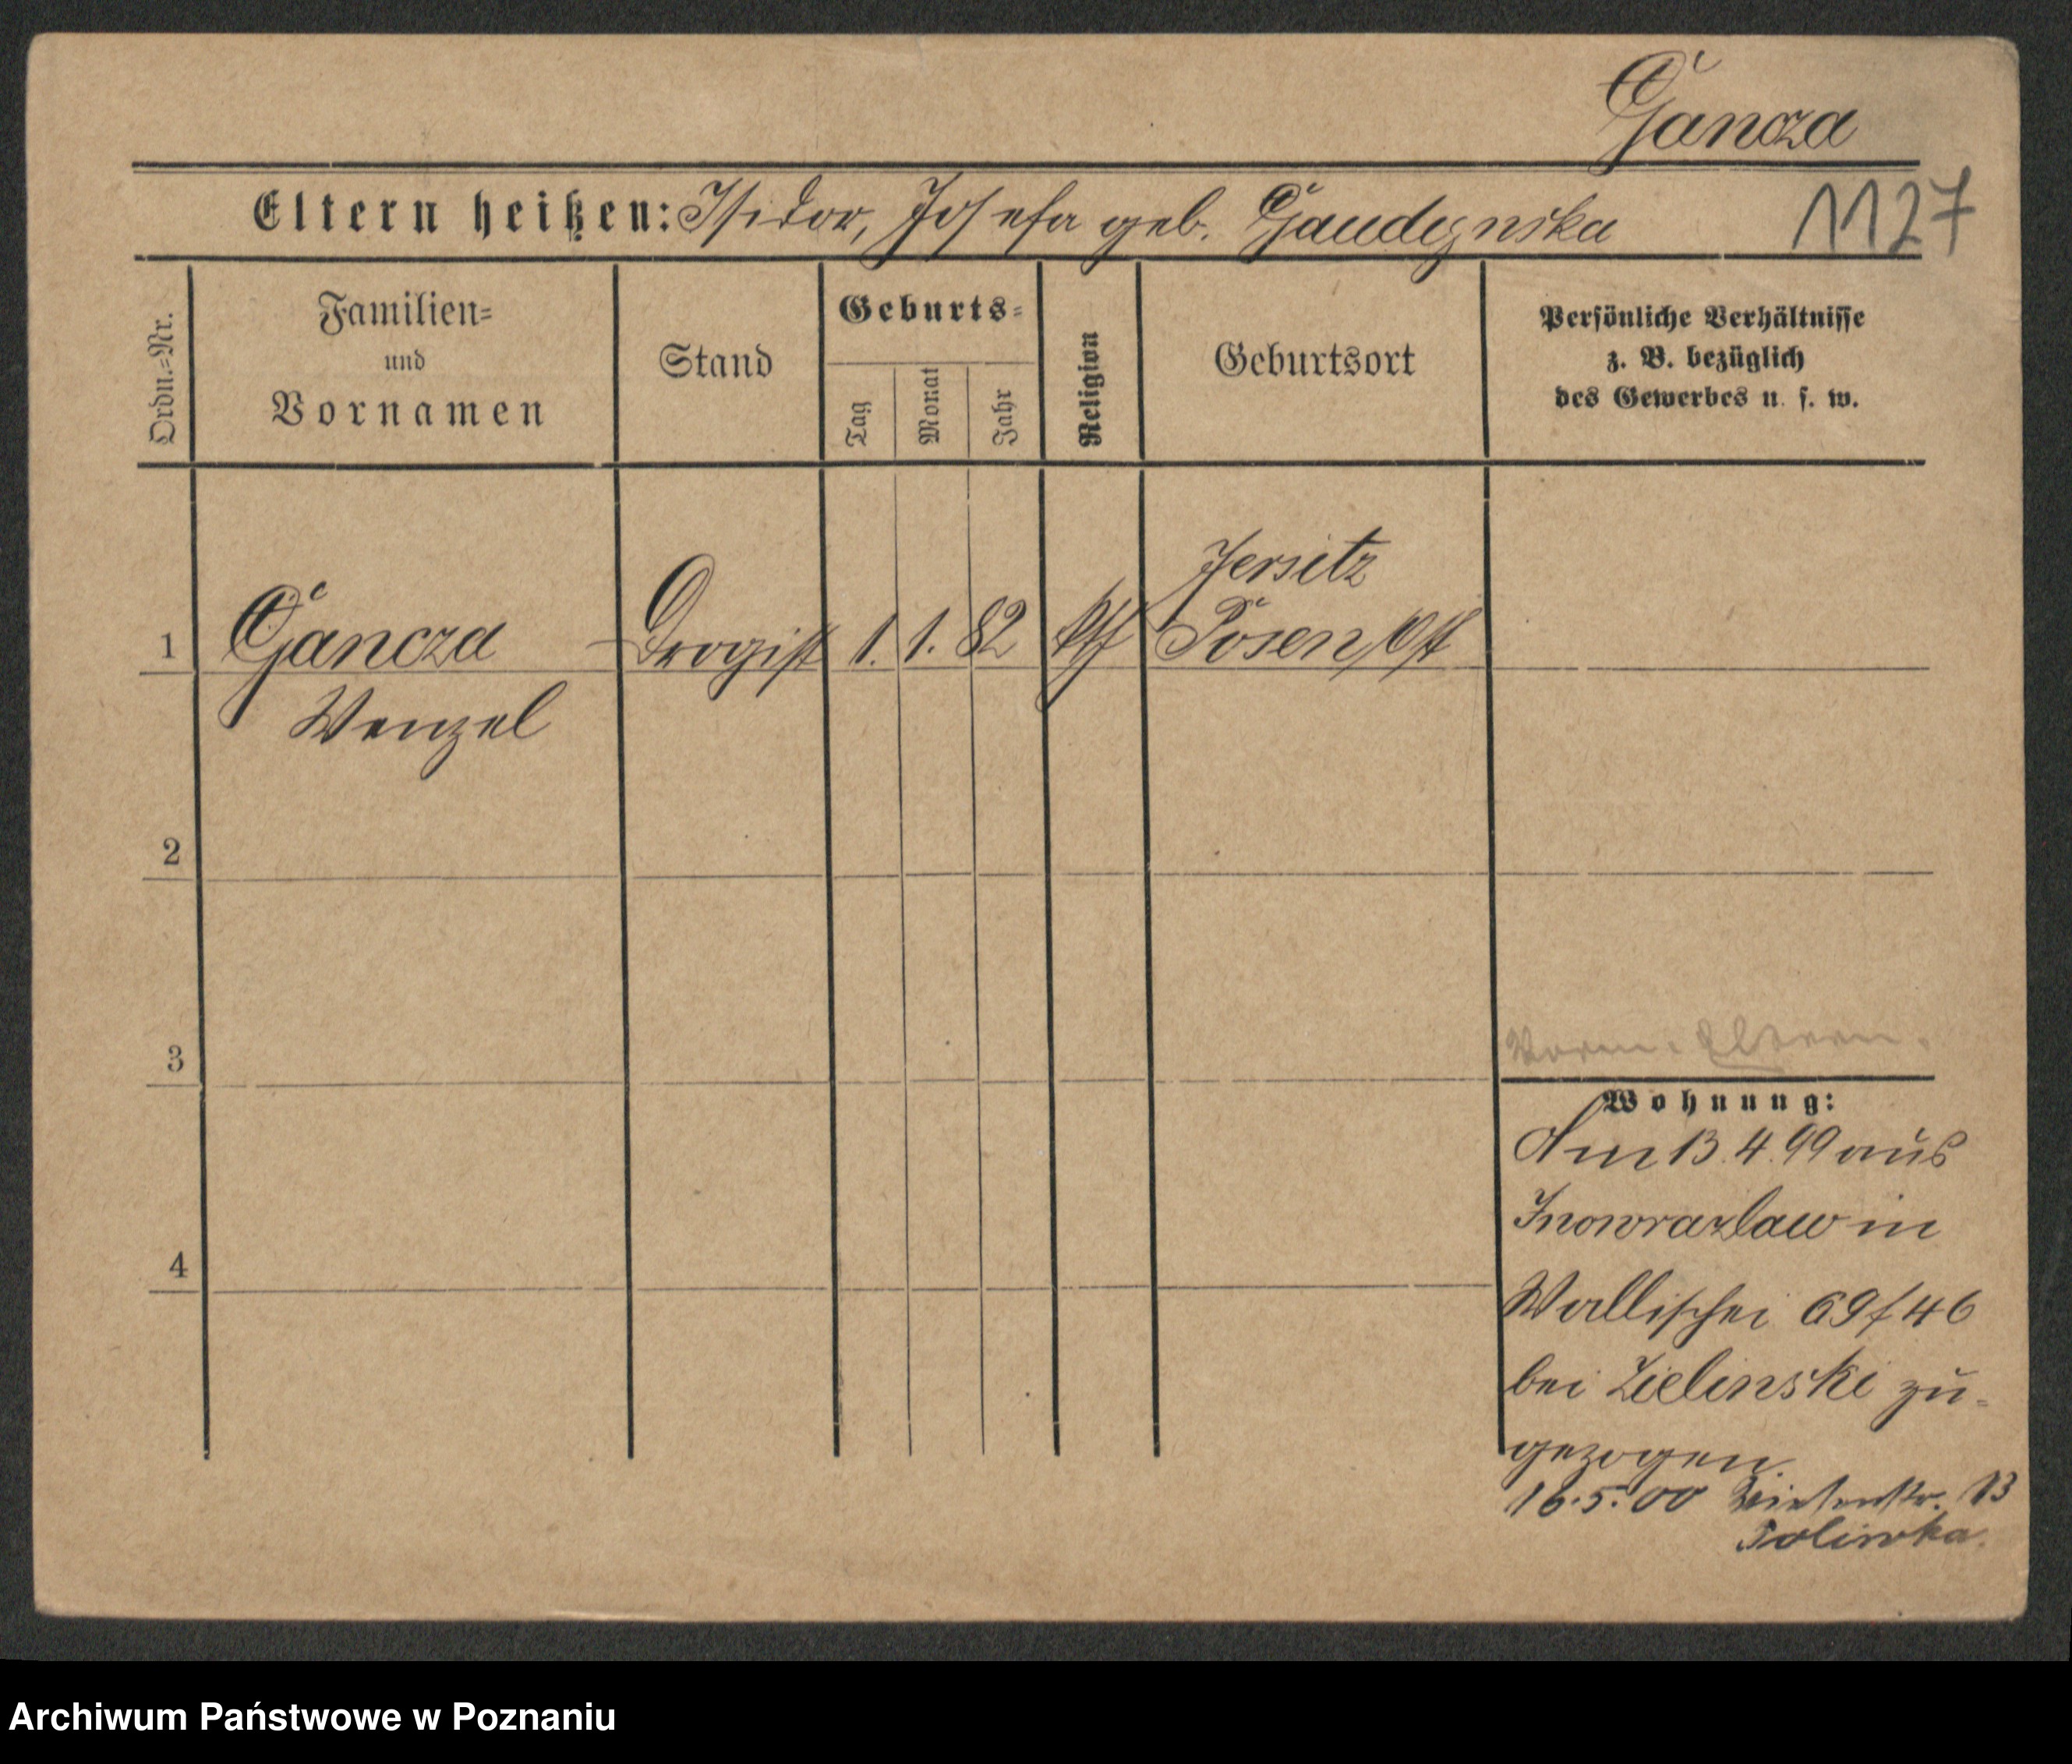 Gancza
Eltern heißen: Isidor, Josefa geb. Gaudeynska
1127
Ordn.=Nr.
Familien=
und
Vornamen
Stand
Geburts=
Tag
Monat
Jahr
Religion
Geburtsort
Persönliche Verhältnisse
z. B. bezüglich
des Gewerbes u. s. w.
Jersitz
1 Gancza Drogist 1. 1. 82 Posen
Wenzel
2
3
4
Wohnung:
Am 13.4.99 aus
Inowrazlaw in
Wallischei 69/46
bei Zielinski zu-
gezogen.
16.5.00 13
Archiwum Państwowe w Poznaniu